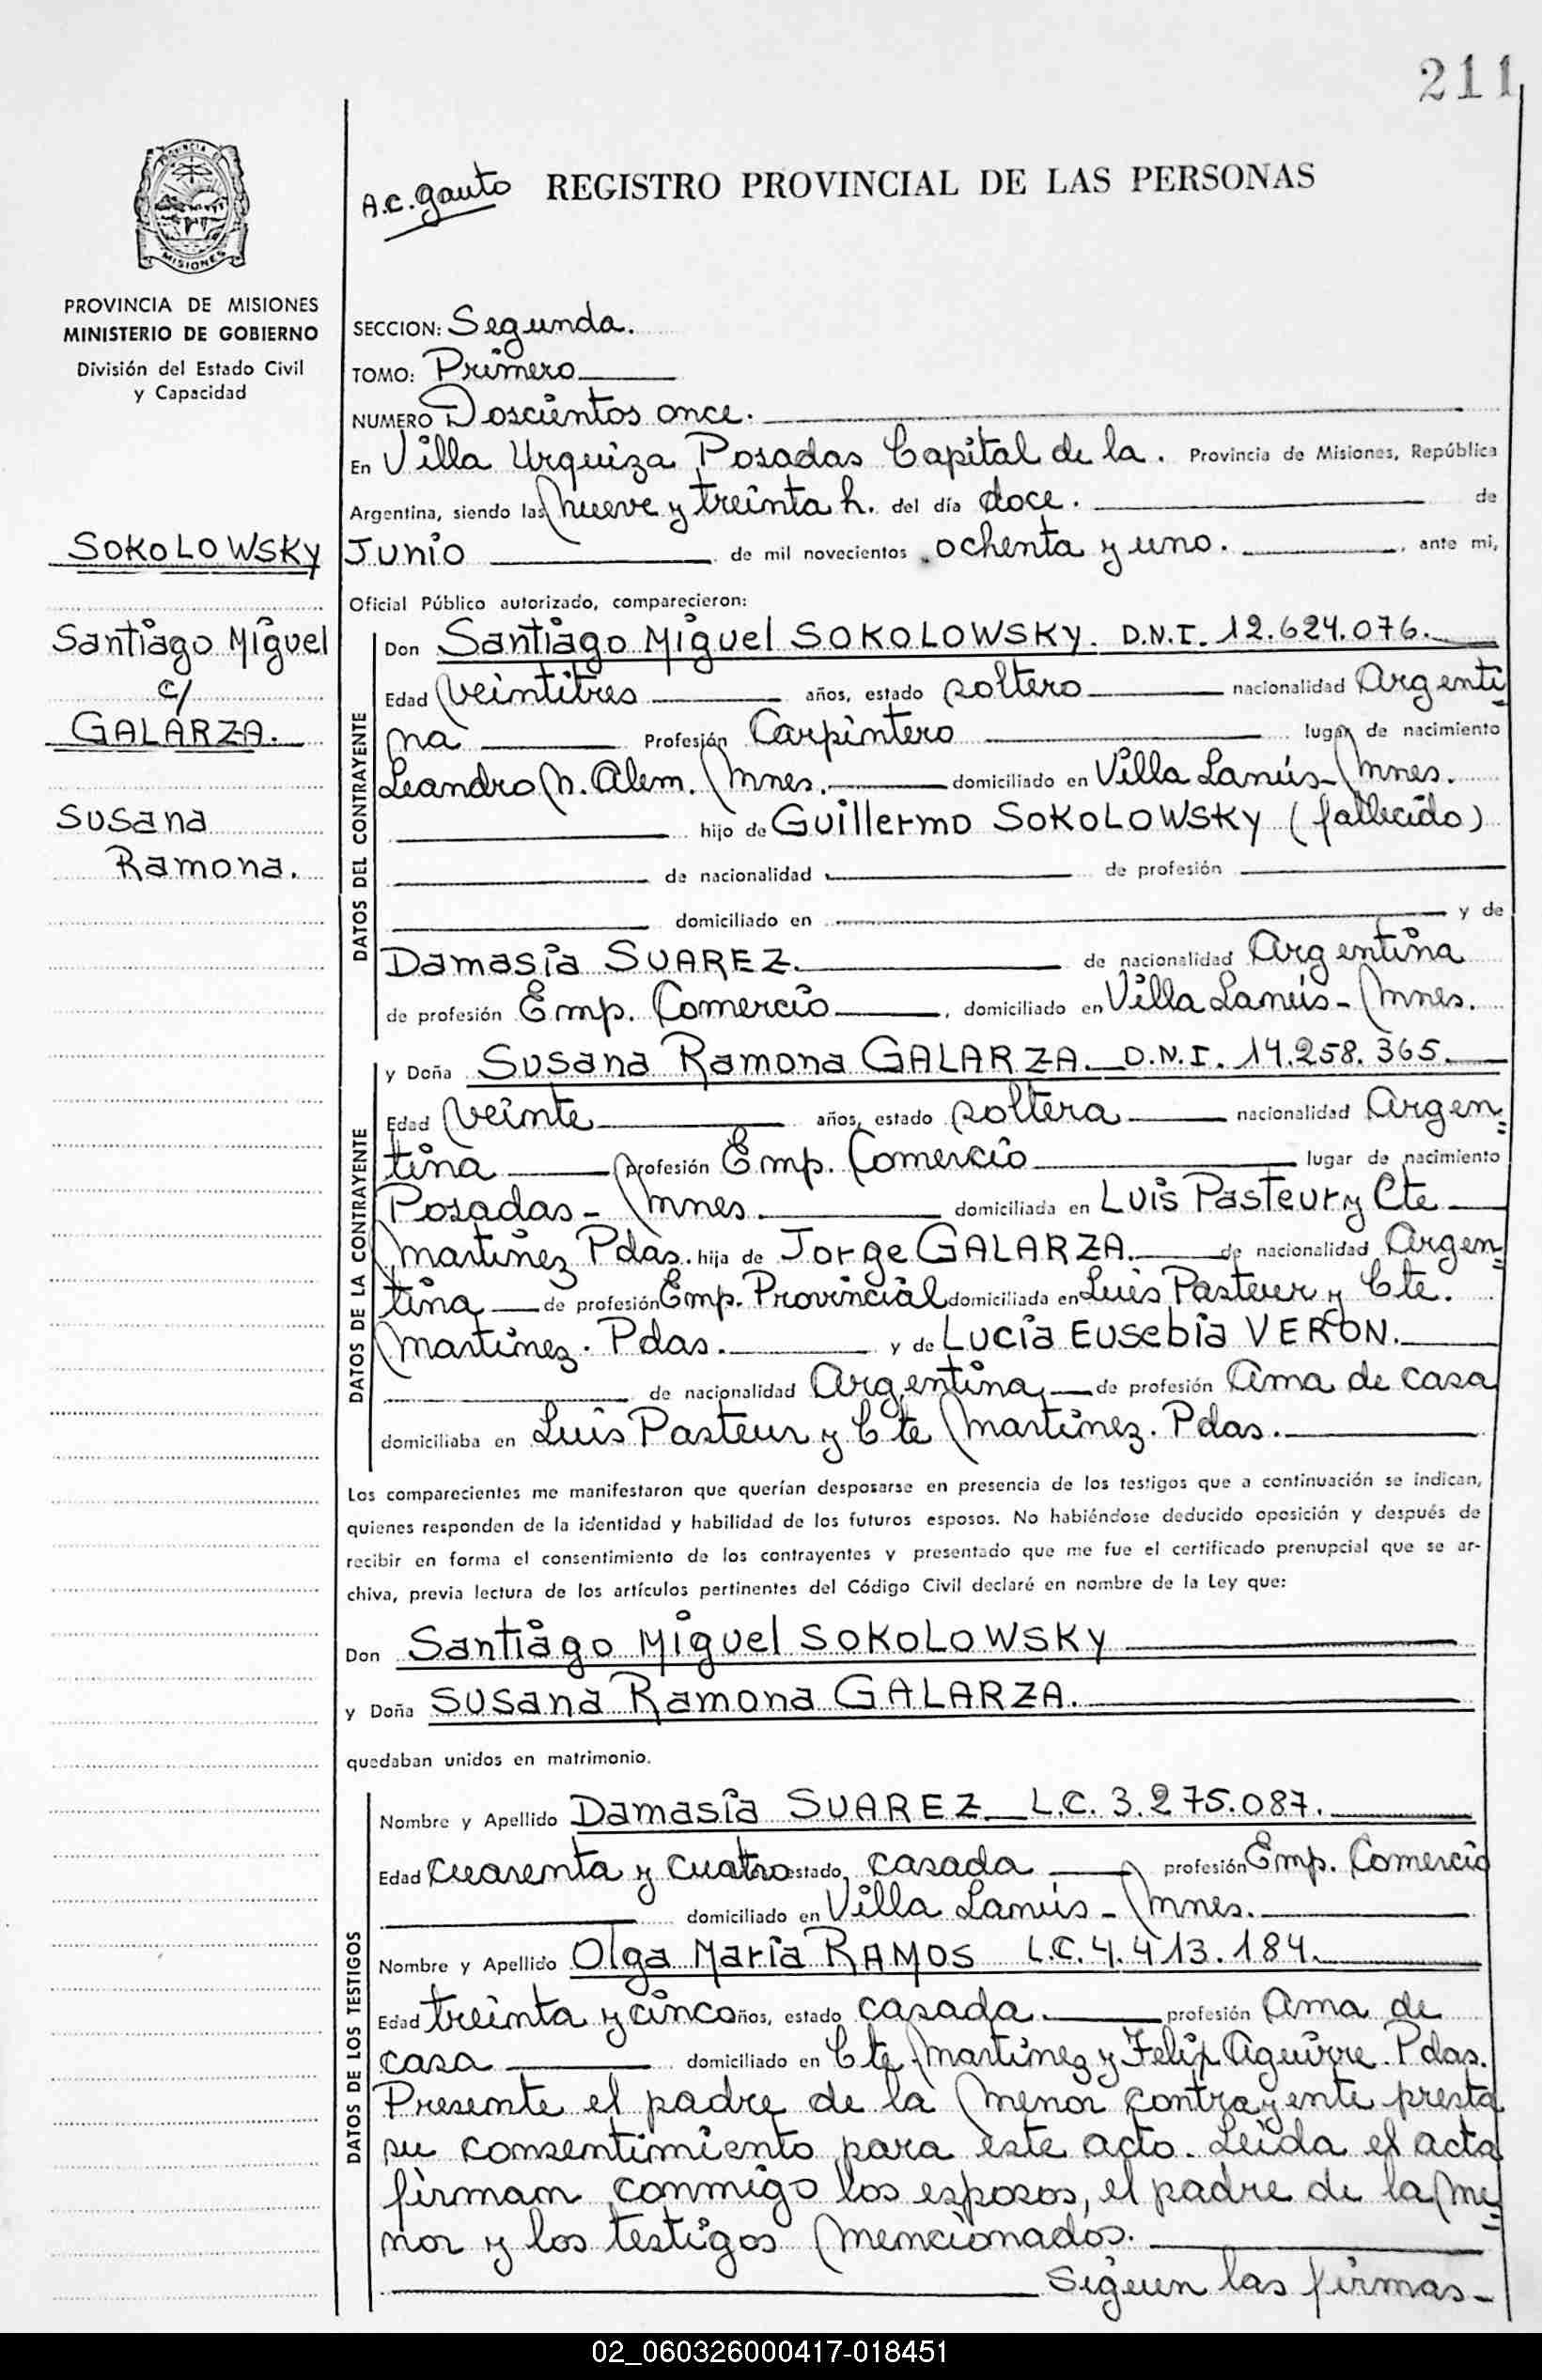 211
A.C. Gauto
REGISTRO PROVINCIAL DE LAS PERSONAS
PROVINCIA
MISIONES
PROVINCIA DE MISIONES
MINISTERIO DE GOBIERNO
División del Estado Civil
y Capacidad
SOKOLOWSKY
Santiago Miguel
c/
GALARZA.
Susana
Ramona.
SECCION: Segunda.
TOMO: Primero
NUMERO Doscientos once.
En Villa Urquiza Posadas Capital de la. Provincia de Misiones, República
Argentina, siendo las nueve y treinta h. del día doce. de
Junio de mil novecientos ochenta y uno. , ante mi,
Oficial Público autorizado, comparecieron:
DATOS DEL CONTRAYENTE
Don Santiago Miguel SOKOLOWSKY. D.N.I. 12.624.076.
Edad veintitres años, estado soltero nacionalidad Argenti
na Profesión Carpintero lugar de nacimiento
Leandro N. Alem. Mnes. domiciliado en Villa Lanús - Mnes.
hijo de Guillermo SOKOLOWSKY (fallecido)
de nacionalidad de profesión
domiciliado en y de
Damasia SUAREZ. de nacionalidad Argentina
de profesión Emp. Comercio , domiciliado en Villa Lanús - Mnes.
DATOS DE LA CONTRAYENTE
y Doña Susana Ramona GALARZA. D.N.I. 14.258.365.
Edad veinte años, estado soltera nacionalidad Argen=
tina profesión Emp. Comercio lugar de nacimiento
Posadas - Mnes domiciliada en Luis Pasteur y Cte
Martinez Pdas. hija de Jorge GALARZA. de nacionalidad Argen=
tina de profesión Emp. Provincial domiciliada en Luis Pasteur y Cte.
Martinez. Pdas. y de Lucía Eusebia VERON.
de nacionalidad Argentina de profesión Ama de casa
domiciliaba en Luis Pasteur y Cte Martinez. Pdas.
Los comparecientes me manifestaron que querían desposarse en presencia de los testigos que a continuación se indican,
quienes responden de la identidad y habilidad de los futuros esposos. No habiéndose deducido oposición y después de
recibir en forma el consentimiento de los contrayentes y presentado que me fue el certificado prenupcial que se ar-
chiva, previa lectura de los artículos pertinentes del Código Civil declaré en nombre de la Ley que:
Don Santiago Miguel SOKOLOWSKY
y Doña Susana Ramona GALARZA.
quedaban unidos en matrimonio.
DATOS DE LOS TESTIGOS
Nombre y Apellido Damasia SUAREZ L.C. 3.275.087.
Edad cuarenta y cuatro estado, casada profesión Emp. Comercio
domiciliado en Villa Lanús - Mnes.
Nombre y Apellido Olga María RAMOS L.C. 4.413.184.
Edad treinta y cinco ños, estado casada. profesión Ama de
casa domiciliado en Cte. Martinez y Felix Aguirre. Pdas.
Presente el padre de la menor contrayente presta
su consentimiento para este acto. Leida el acta
firman conmigo los esposos, el padre de la me=
nor y los testigos mencionados.
Siguen las firmas-
02_060326000417-018451